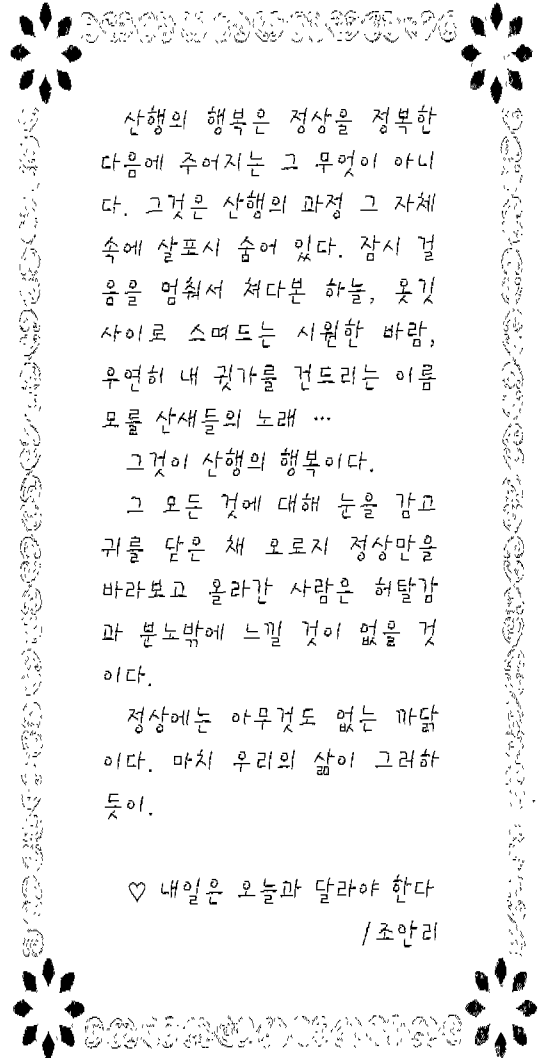 산행의 행복은 정상을 정복한
다음에 주어지는 그 무엇이 아니
다. 그것은 산행의 과정 그 자체
속에 살포시 숨어 있다. 잠시 걸
음을 멈춰서 쳐다본 하늘, 옷깃
사이로 스며드는 시원한 바람,
우연히 내 귓가를 건드리는 이름
모를 산새들의 노래 …
그것이 산행의 행복이다.
그 모든 것에 대해 눈을 감고
귀를 닫은 채 오로지 정상만을
바라보고 올라간 사람은 허탈감
과 분노밖에 느낄 것이 없을 것
이다.
정상에는 아무것도 없는 까닭
이다. 마치 우리의 삶이 그러하
듯이.
♡ 내일은 오늘과 달라야 한다
/조안리